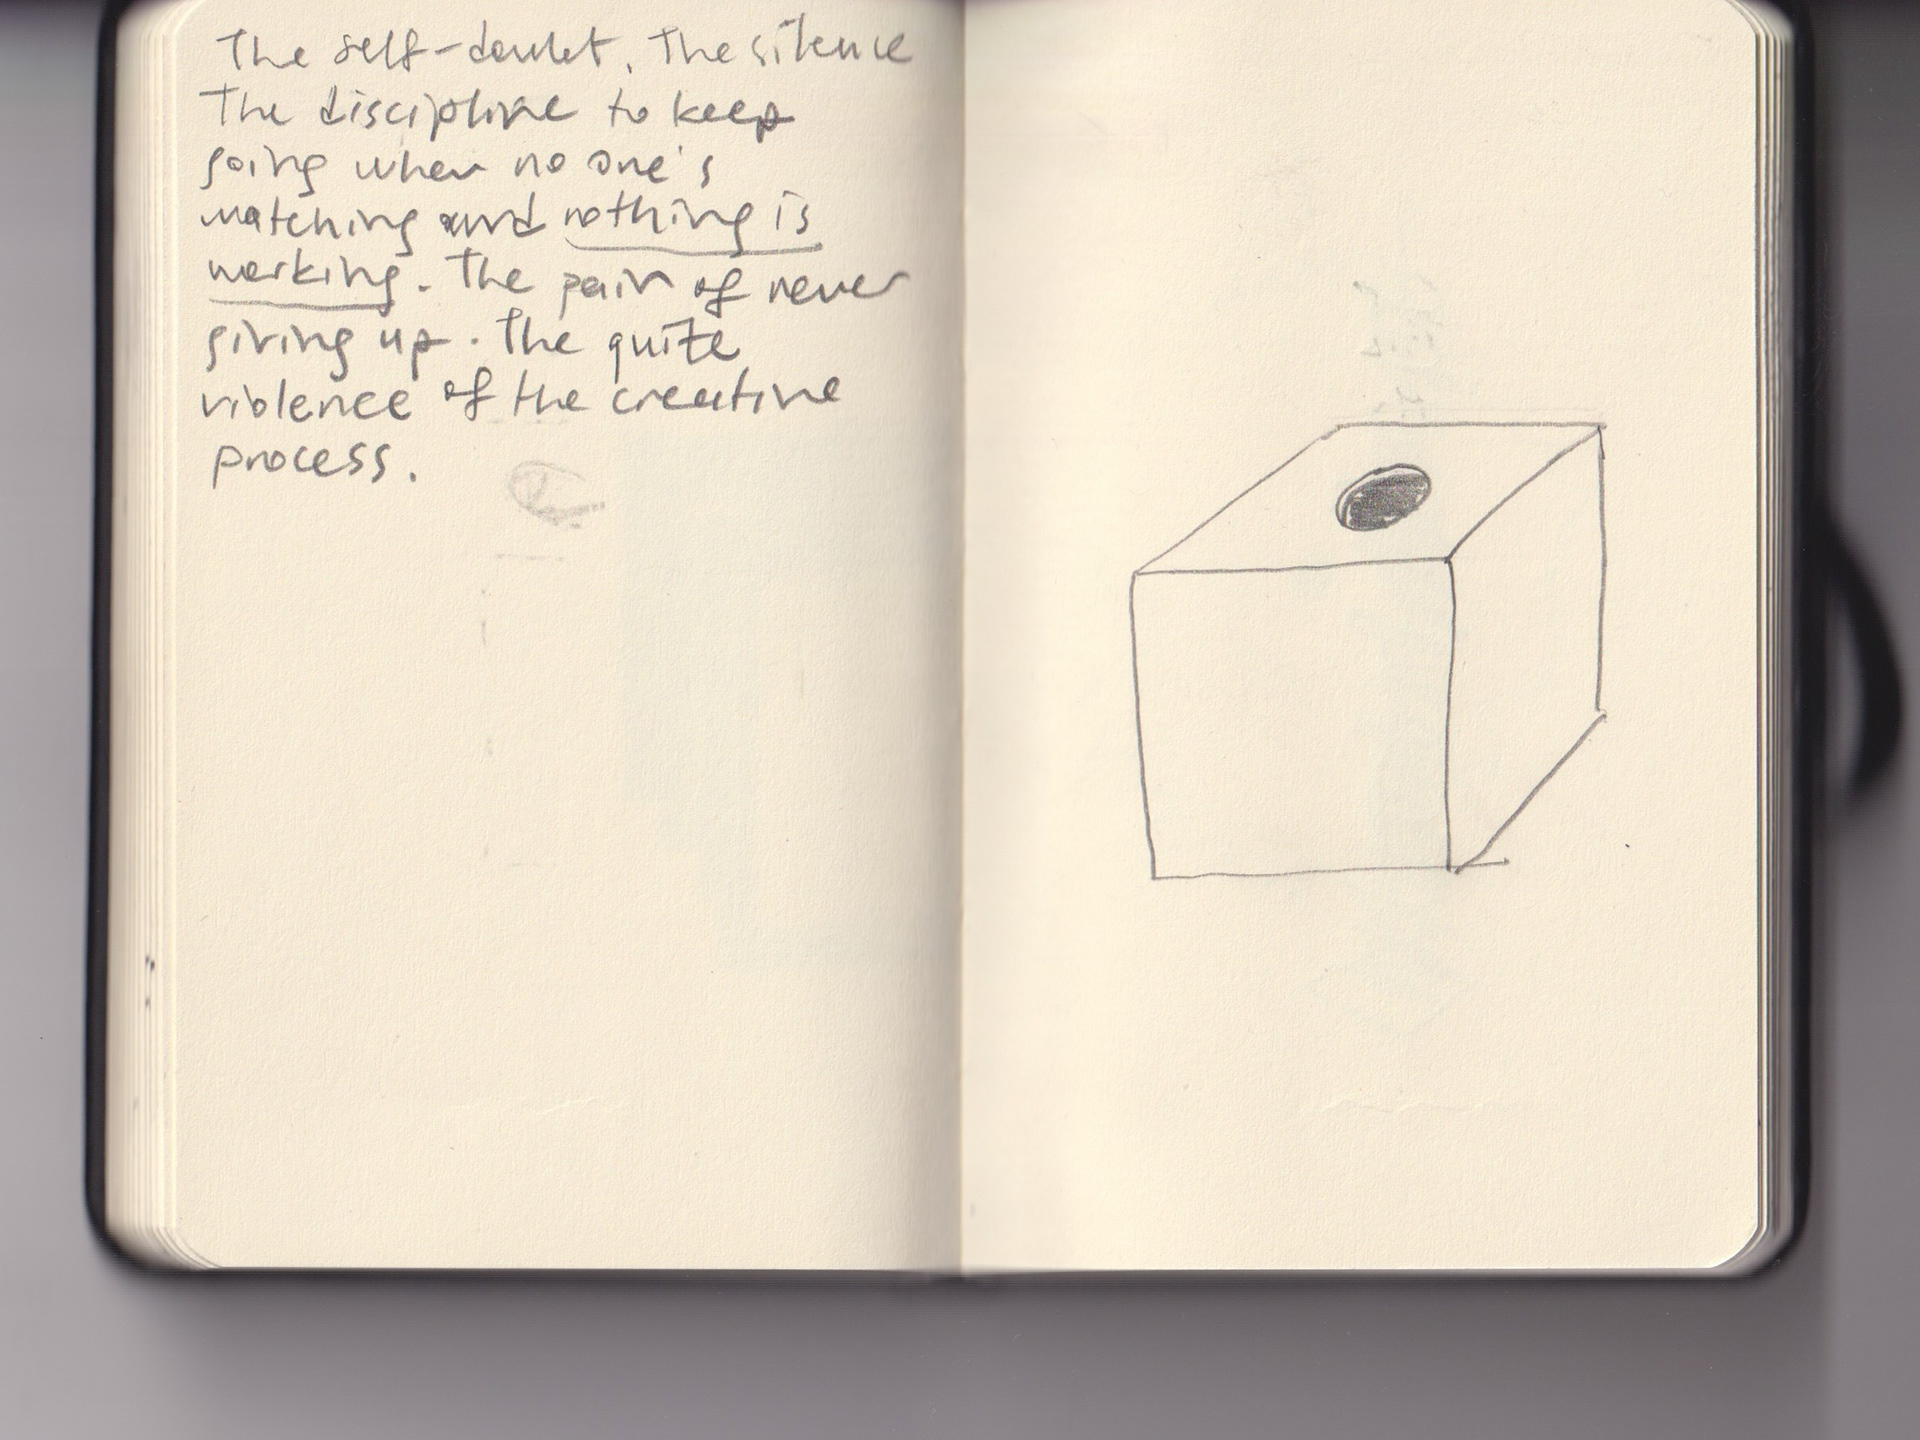 The self-doubt. The silence
The discipline to keep
going when no one's
watching and nothing is
working. The pain of never
giving up. The quite
violence of the creative
process.